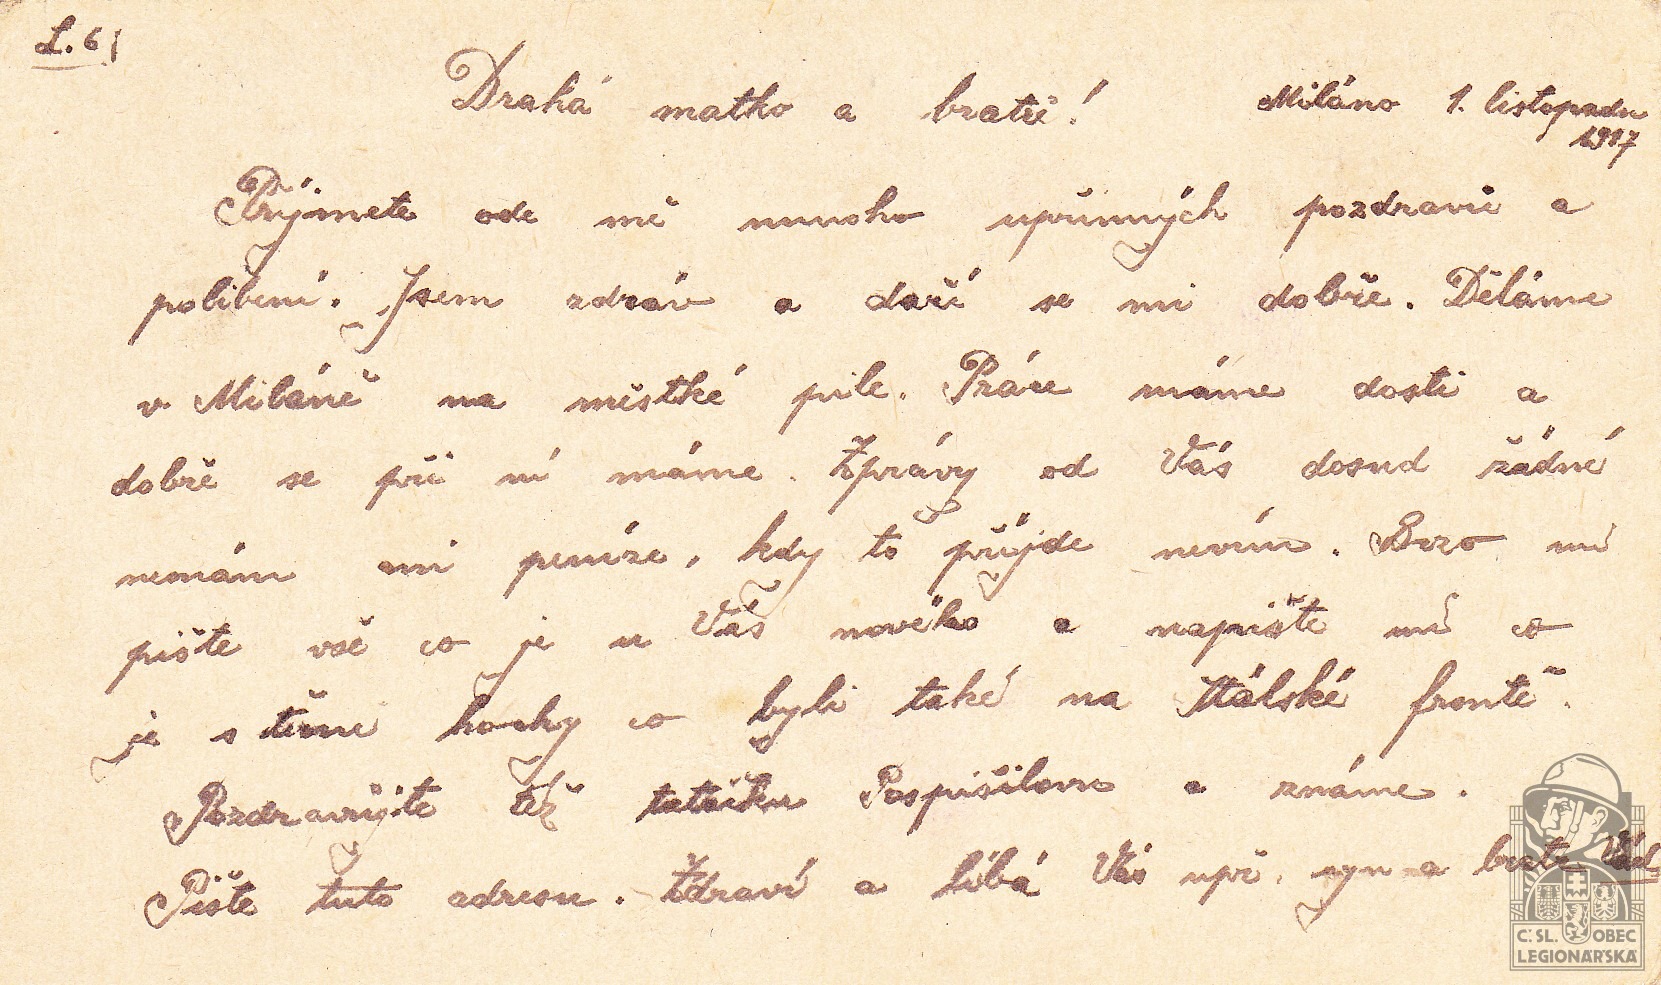 L. 6)
Drahá matko a bratři! Miláno 1. listopadu
1917
Přijmete ode mě mnoho upřímných pozdravů a
políbení. Jsem zdráv a daří se mi dobře. Děláme
v Miláně na městké pile. Práce máme dosti a
dobře se při ní máme. Zprávy od Vás dosud žádné
nemám ani peníze, kdy to přijde nevím. Brzo mě
pište vše co je u Vás nového a napište mě co
je s těmi hochy co byli také na Itálské frontě.
Pozdravujte též tatíčka Pospíšilovo a známe.
Pište tuto adresu. Zdraví a líbá Vás upř. syn a bratr
Č. SL. OBEC
LEGIONÁŘSKÁ